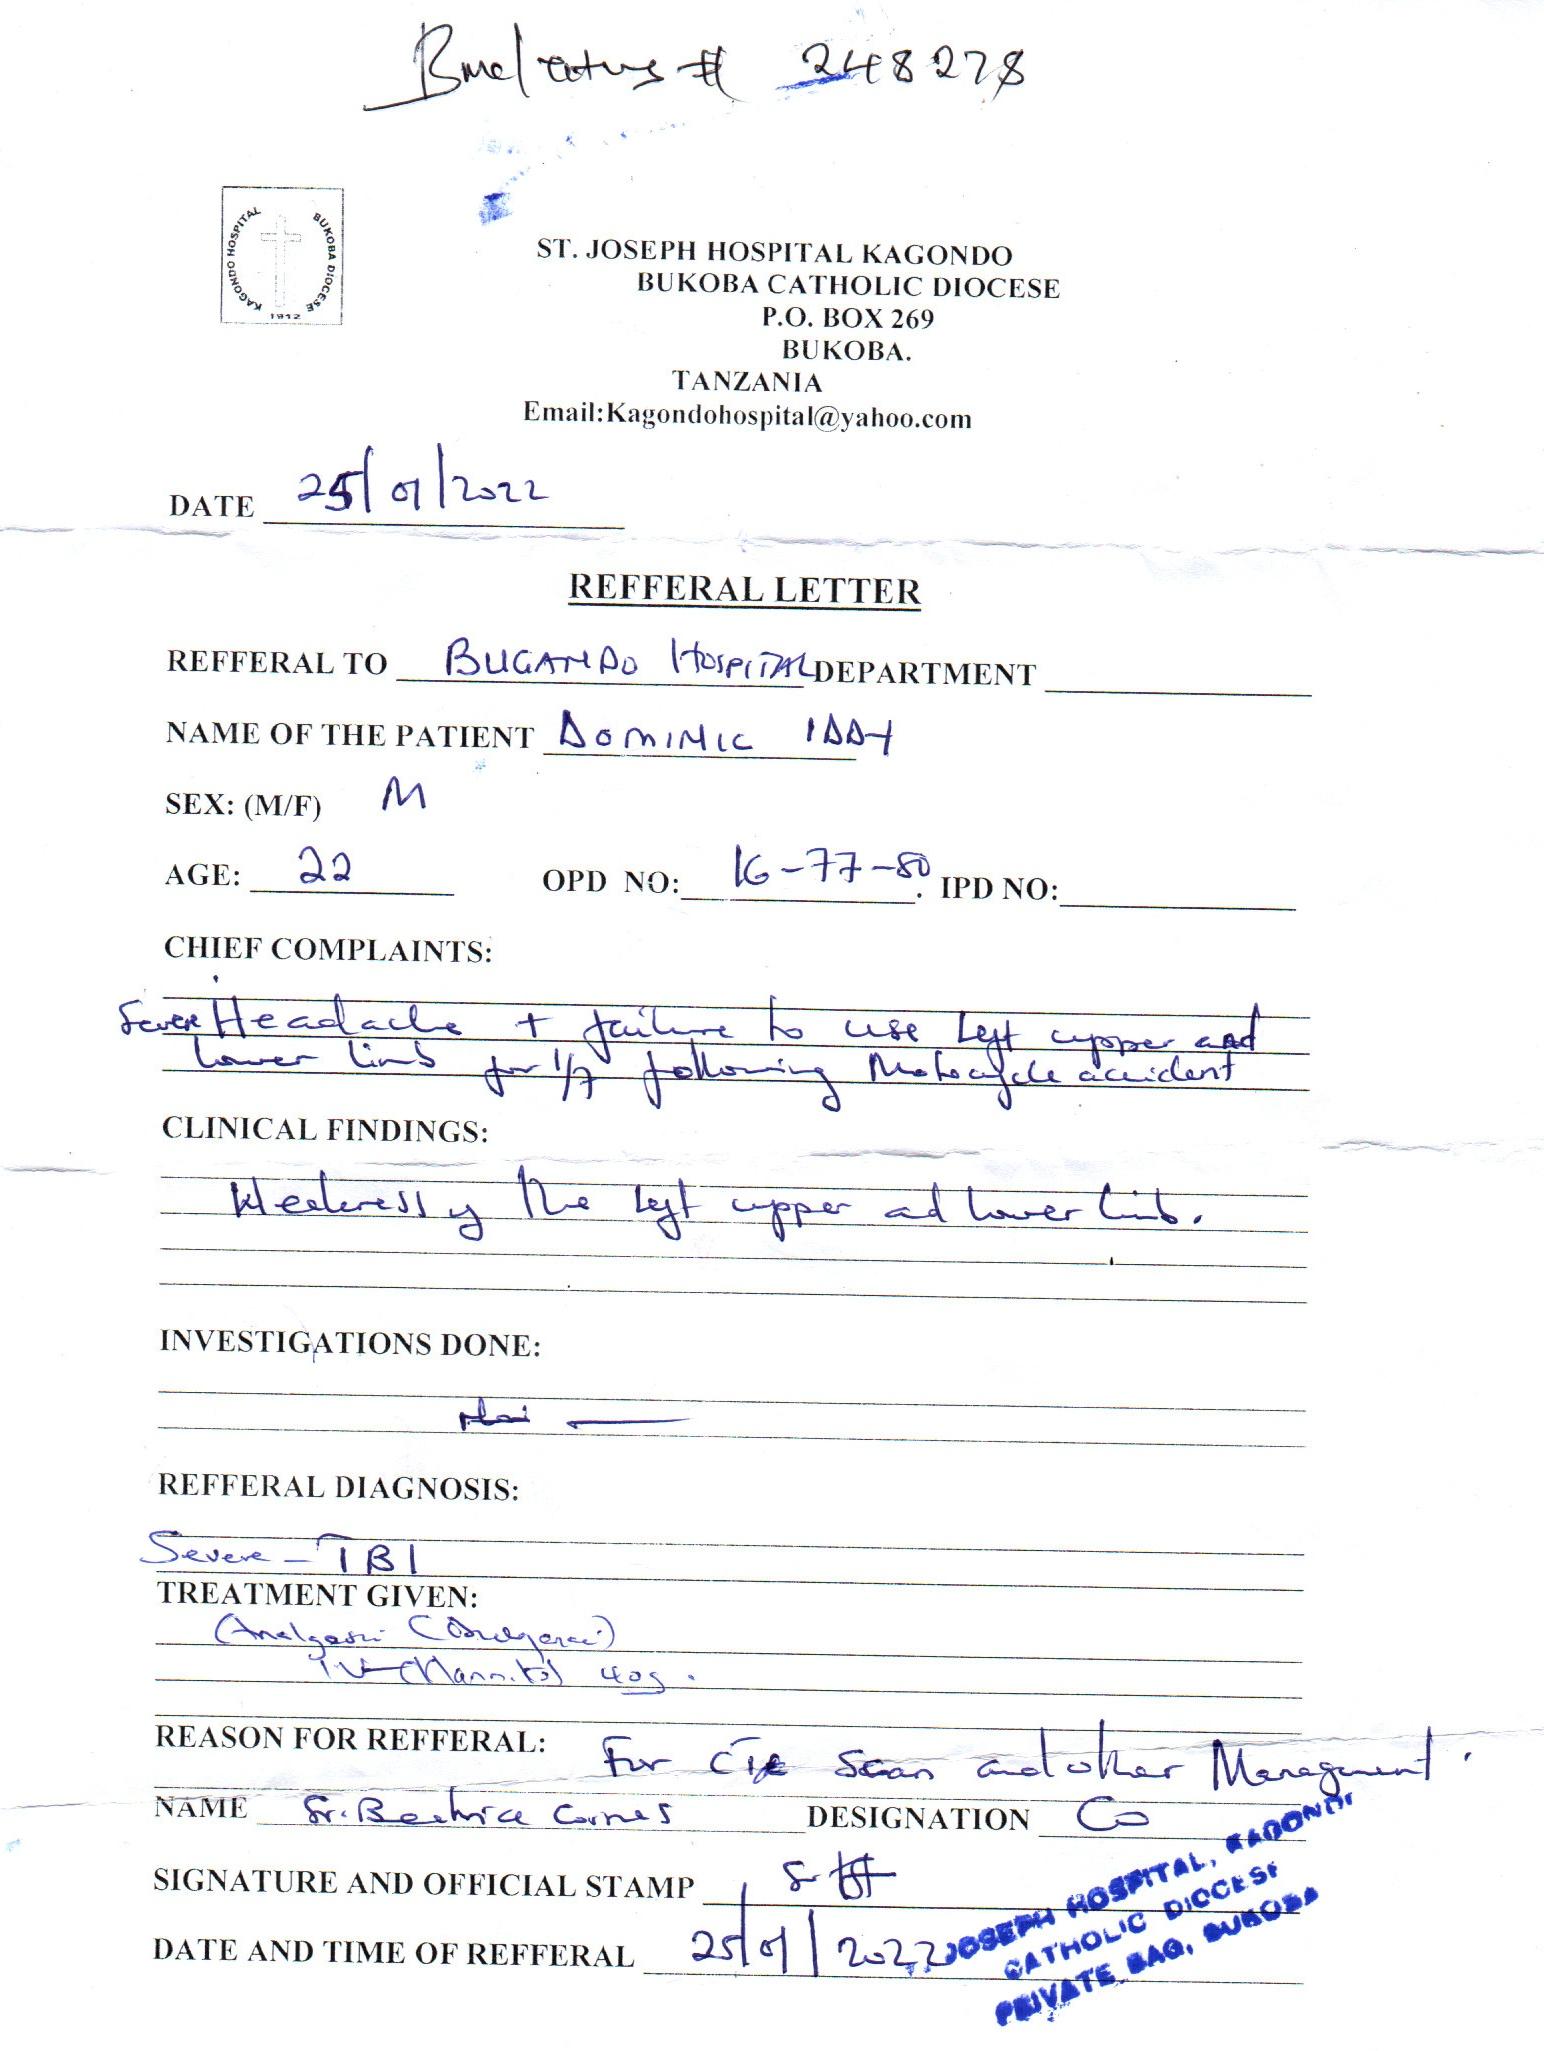 # 248278
KAGONDO HOSPITAL
BUKOBA DIOCESE
1912
ST. JOSEPH HOSPITAL KAGONDO
BUKOBA CATHOLIC DIOCESE
P.O. BOX 269
BUKOBA.
TANZANIA
Email:Kagondohospital@yahoo.com
DATE 25/01/2022
REFFERAL LETTER
REFFERAL TO BUGANDO HOSPITAL DEPARTMENT
NAME OF THE PATIENT DOMINIC IDDY
SEX: (M/F) M
AGE: 22 OPD NO: 16-77-80. IPD NO:
CHIEF COMPLAINTS:
Severe Headache + failure to use left upper and
lower limb for 1/7 following Motocycle accident
CLINICAL FINDINGS:
Weakness of the left upper and lower limb.
INVESTIGATIONS DONE:
REFFERAL DIAGNOSIS:
Severe - TBI
TREATMENT GIVEN:
IV (Mannitol) 40g.
REASON FOR REFFERAL: For CT Scan and other Managment.
NAME Sr. Beatrice DESIGNATION CO
SIGNATURE AND OFFICIAL STAMP
DATE AND TIME OF REFFERAL 25/01/2022
JOSEPH HOSPITAL, KAGONDO
CATHOLIC DIOCESE
PRIVATE BAG, BUKOBA